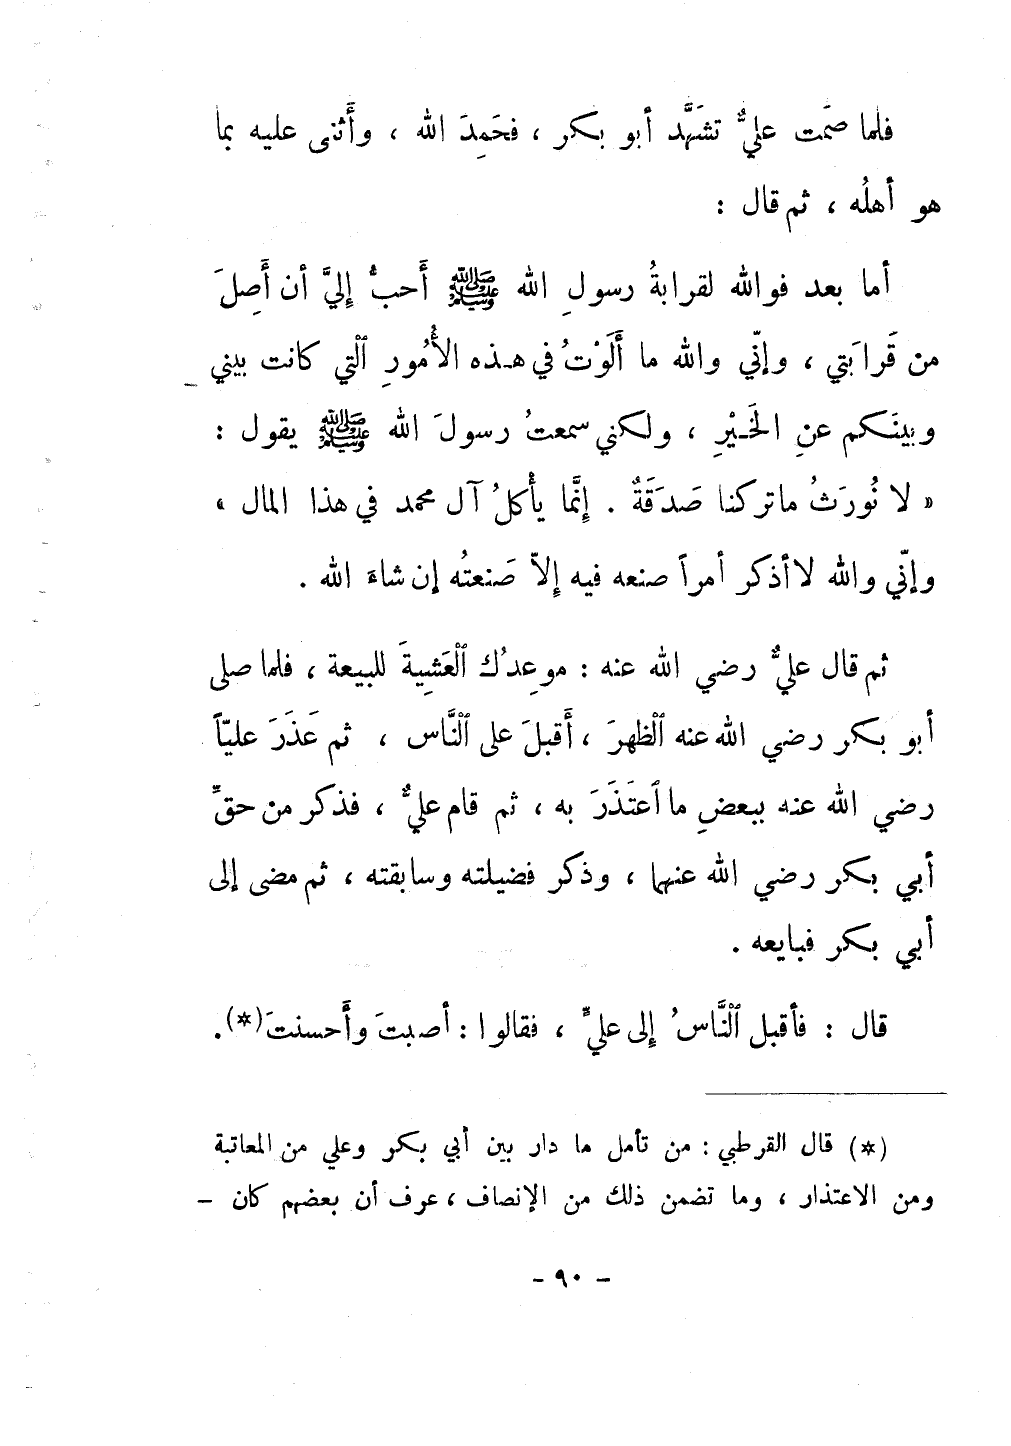 فلما صمَت عليٌّ تشَهَّد أبو بكر ، فحَمِدَ الله ، وأَثنى عليه بما
هو أهلُه ، ثم قال :
أما بعد فوالله لقرابةُ رسولِ الله ﷺ أَحبُّ إليَّ أن أَصِلَ
من قَرابَتي ، وإنّي والله ما أَلَوْتُ في هـذه الأُمُورِ ٱلتي كانت بيني
وبينَـكم عنِ الخَـيْرِ ، ولكني سمعتُ رسولَ الله ﷺ يقول :
« لا نُورَثُ ماتركنا صَدَقَةٌ . إنَّما يأْكلُ آل محمد في هذا المال »
وإنّي والله لاأذكر أمراً صنعه فيه إلاّ صَنعتُه إن شاءَ الله .
ثم قال عليٌّ رضي الله عنه : موعِدُك ٱلعَشِيةَ للبيعة ، فلما صلى
أبو بكر رضي الله عنه ٱلظهرَ ، أَقبلَ على ٱلنَّاس ، ثم عَذَرَ عليّاً
رضي الله عنه ببعضِ ما ٱعتَذَرَ به ، ثم قام عليٌّ ، فذكر من حقِّ
أبي بكر رضي الله عنهما ، وذكر فضيلته وسابقته ، ثم مضى إلى
أبي بكر فبايعه .
قال : فأقبل ٱلنَّاسُ إلى عليٍّ ، فقالوا : أصبتَ وأَحسنتَ(*).
(*) قال القرطبي : من تأمل ما دار بين أبي بكر وعلي من المعاتبة
ومن الاعتذار ، وما تضمن ذلك من الإنصاف ، عرف أن بعضهم كان –
- ٩٠ -